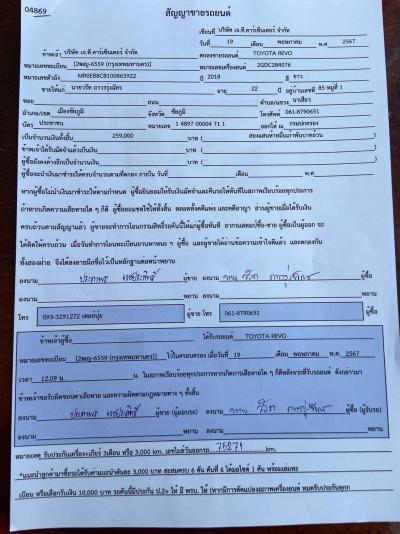 04869
สัญญาขายรถยนต์
เขียนที่ บริษัท เจ.ที.คาร์เซ็นเตอร์ จำกัด
วันที่ 19 เดือน พฤษภาคม พ.ศ 2567
ข้าพเจ้า บริษัท เจ.ที.คาร์เซ็นเตอร์ จำกัด ตกลงขายรถยนต์ TOYOTA REVO
หมายเลขทะเบียน [2ฒญ-6559 (กรุงเทพมหานคร)] หมายเลขเครื่องยนต์ 2GDC284076
หมายเลขตัวถัง MR0EB8CB100863922 ปี 2018 สี ขาว
ขายให้แก่ นายวริท ถาวรรุ่งฉัตร อายุ 22 ปี อยู่บ้านเลขที่ 85 หมู่ที่ 1
ซอย ถนน ตำบล/แขวง นาเสียว
อำเภอ/เขต เมืองชัยภูมิ จังหวัด ชัยภูมิ โทรศัพท์ 061-8790651
บัตร ประชาชน หมายเลข 1 4897 00004 71 1 ออกให้ ณ กรมปกครอง
เป็นจำนวนเงินทั้งสิ้น 259,000 บาท ( สองแสนห้าหมื่นเก้าพันบาทถ้วน )
ข้าพเจ้าได้รับมัดจำแล้วเป็นเงิน บาท ( )
ผู้ซื้อยังคงค้างอีกเป็นจำนวนเงิน บาท ( )
ผู้ซื้อจะนำเงินมาชำระให้ครบจำนวนตามที่ตกลง ภายใน วันที่ เดือน พ.ศ.
หากผู้ซื้อไม่นำเงินมาชำระให้ตามกำหนด ผู้ซื้อยินยอมให้ริบเงินมัดจำและคืนรถให้ทันทีในสภาพเรียบร้อยทุกประการ
ถ้าหากเกิดความเสียหายใด ๆ ก็ดี ผู้ซื้อยอมชดใช้ให้ทั้งสิ้น ตลอดทั้งคดีแพ่ง และคดีอาญา ส่วนผู้ขายเมื่อได้รับเงิน
ครบถ้วนตามสัญญาแล้ว ผู้ขายจะทำการโอนกรรมสิทธิ์รถคันนี้ให้แก่ผู้ซื้อทันที
ได้คิดให้ครบถ้วน เมื่อวันทำการโอนทะเบียนยานพาหนะ ๆ ผู้ซื้อ และผู้ขายได้อ่านข้อความเข้าใจดีแล้ว และตกลงกัน
ทั้งสองฝ่าย จึงได้ลงลายมือชื่อไว้เป็นหลักฐานต่อหน้าพยาน
ลงนาม ผู้ขาย ลงนาม ผู้ซื้อ
ลงนาม พยาน ลงนาม พยาน
โทร 093-3291272 เซลล์ปุ้ย ผู้ขาย โทร 061-8790651 ผู้ซื้อ
ข้าพเจ้าผู้ซื้อ ได้รับรถยนต์ TOYOTA REVO
หมายเลขทะเบียน [2ฒญ-6559 (กรุงเทพมหานคร)] ไว้ในครอบครอง เมื่อวันที่ 19 เดือน พฤษภาคม พ.ศ. 2567
เวลา 12.09 น. น. ในสภาพเรียบร้อยทุกประการหากเกิดการเสียหายใด ๆ ก็ดีหลังจากที่รับรถยนต์ ดังกล่าวมา
ข้าพเจ้าขอรับผิดชอบค่าเสียหาย และความผิดตามกฎหมายต่าง ๆ ทั้งสิ้น
ลงนาม ผู้ขาย (ผู้มอบรถ) ลงนาม ผู้ซื้อ (ผู้รับรถ)
ลงนาม พยาน ลงนาม พยาน
หมายเหตุ รับประกันเครื่อง+เกียร์ 3เดือน หรือ 3,000 km. เลขไมล์วันออกรถ 75271 km.
*แนะนำลูกค้ามาซื้อรถได้รับค่าแนะนำคันละ 3,000 บาท สะสมครบ 6 คัน คันที่ 6 ได้มอไซค์ 1 คัน พร้อมเล่มทะ
เบียน หรือเลือกรับเงิน 10,000 บาท รถคันนี้มีประกัน ป.2+ ให้ มี พรบ. ให้ (หากมีการดัดแปลงสภาพเครื่องยนต์ หมดรับประกันทุกก